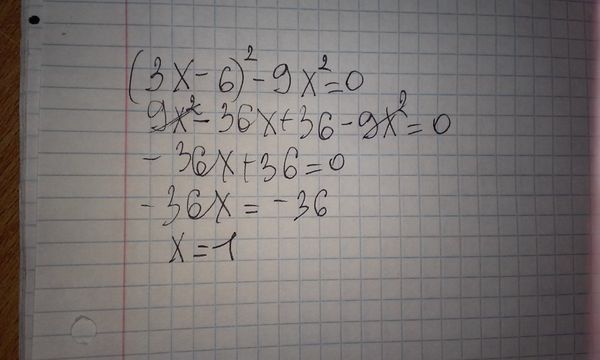 (3x-6)²-9x²=0
9x²-36x+36-9x²=0
-36x+36=0
-36x=-36
x=1